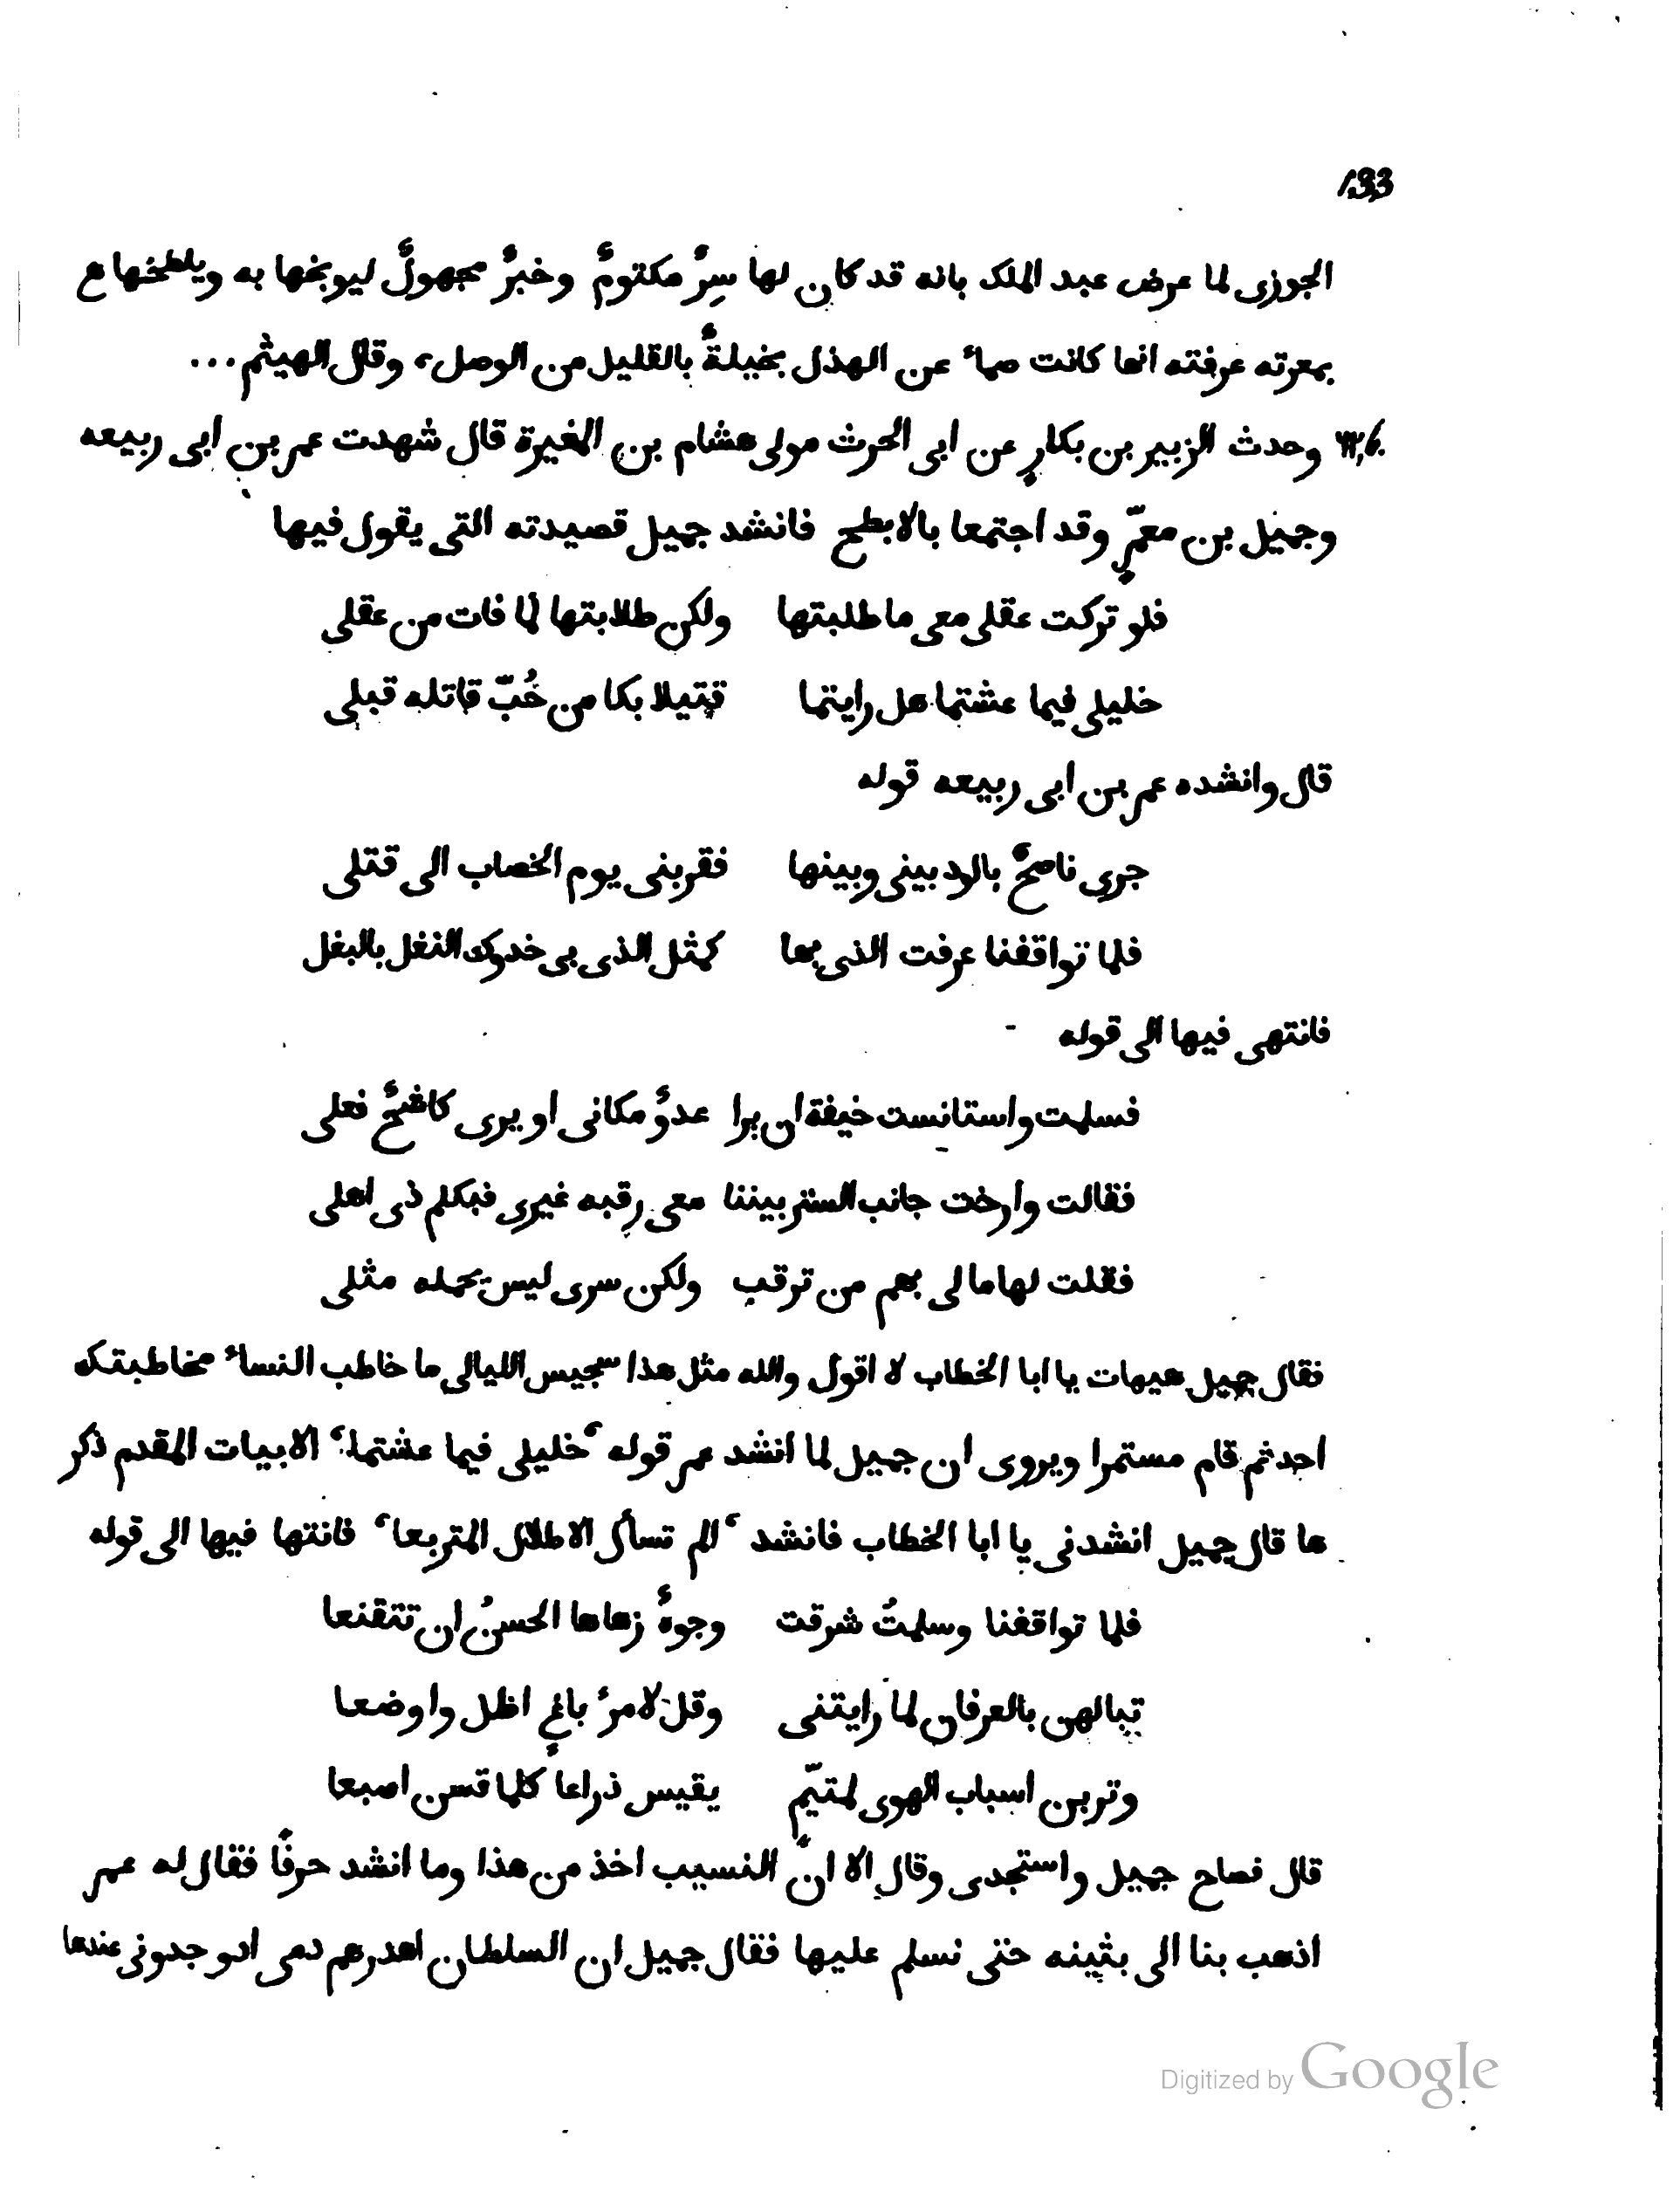 133
الجوزى لما عرض عبد الملك بانه قد كان لها سِرٌ مكتومٌ وخبرٌ مجهولٌ ليوبخها به ويلطخها ع
بمعرته عرفته انها كانت صماء عن الهذل بخيلةٌ بالقليل من الوصل، وقال الهيثم ...
وحدث الزبير بن بكارٍ عن ابى الحرث مولى هشام بن المغيرة قال شهدت عمر بن ابى ربيعه
وجميل بن معمّرٍ وقد اجتمعا بالابطح فانشد جميل قصيدته التى يقول فيها
فلو تركت عقلى معى ما طلبتها ولكن طلابتها لما فات من عقلى
خليلى فيما عشتما هل رايتما قتيلا بكا من حُبّ قاتله قبلى
قال وانشده عمر بن ابى ربيعه قوله
جرى ناصحٌ بالود بينى وبينها فقربنى يوم الخصاب الى قتلى
فلما تواقفنا عرفت الذى بها كمثل الذى بى خدوك النغل بالبغل
فانتهى فيها الى قوله
فسلمت واستانست خيفة ان يرا عدوٌ مكانى او يرى كاشحٌ فعلى
فقالت وارخت جانب الستر بيننا معى رقبه غيرى فبكلم ذى اهلى
فقلت لها ما لى بهم من ترقب ولكن سرى ليس يحمله مثلى
فقال جميل هيهات يا ابا الخطاب لا اقول والله مثل هذا سجيس الليالى ما خاطب النساء مخاطبتك
احد ثم قام مستمرا ويروى ان جميل لما انشد عمر قوله ‘خليلى فيما عشتما‘ الابيات المقدم ذكر
ها قال جميل انشدنى يا ابا الخطاب فانشد ‘الم تسأل الاطلال المتربعا‘ فانتها فيها الى قوله
فلما تواقفنا وسلمتُ شرقت وجوهٌ زهاها الحسنُ ان تتقنعا
تبالهن بالعرفان لما رايتنى وقلن لامرء باغٍ اظل واوضعا
وتربن اسباب الهوى لمتيّمٍ يقيس ذراعا كلما قسن اصبعا
قال فصاح جميل واستجدى وقال الا انّ النسيب اخذ من هذا وما انشد حرفًا فقال له عمر
اذهب بنا الى بثينه حتى نسلم عليها فقال جميل ان السلطان اهدرهم دمى ادو جدونى عندها
Digitized by Google